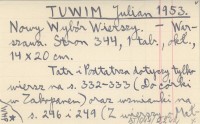 TUWIM Julian 1953.
Nowy Wybór Wierszy. — War-
szawa. Stron 344, 1 tabl., okł.,
14 x 20 cm.
Tatr i Podtatrza dotyczy tylko
wiersz na s. 332-333 (Do córki
w Zakopanem) oraz wzmianki na
s. 246 i 249 (Z